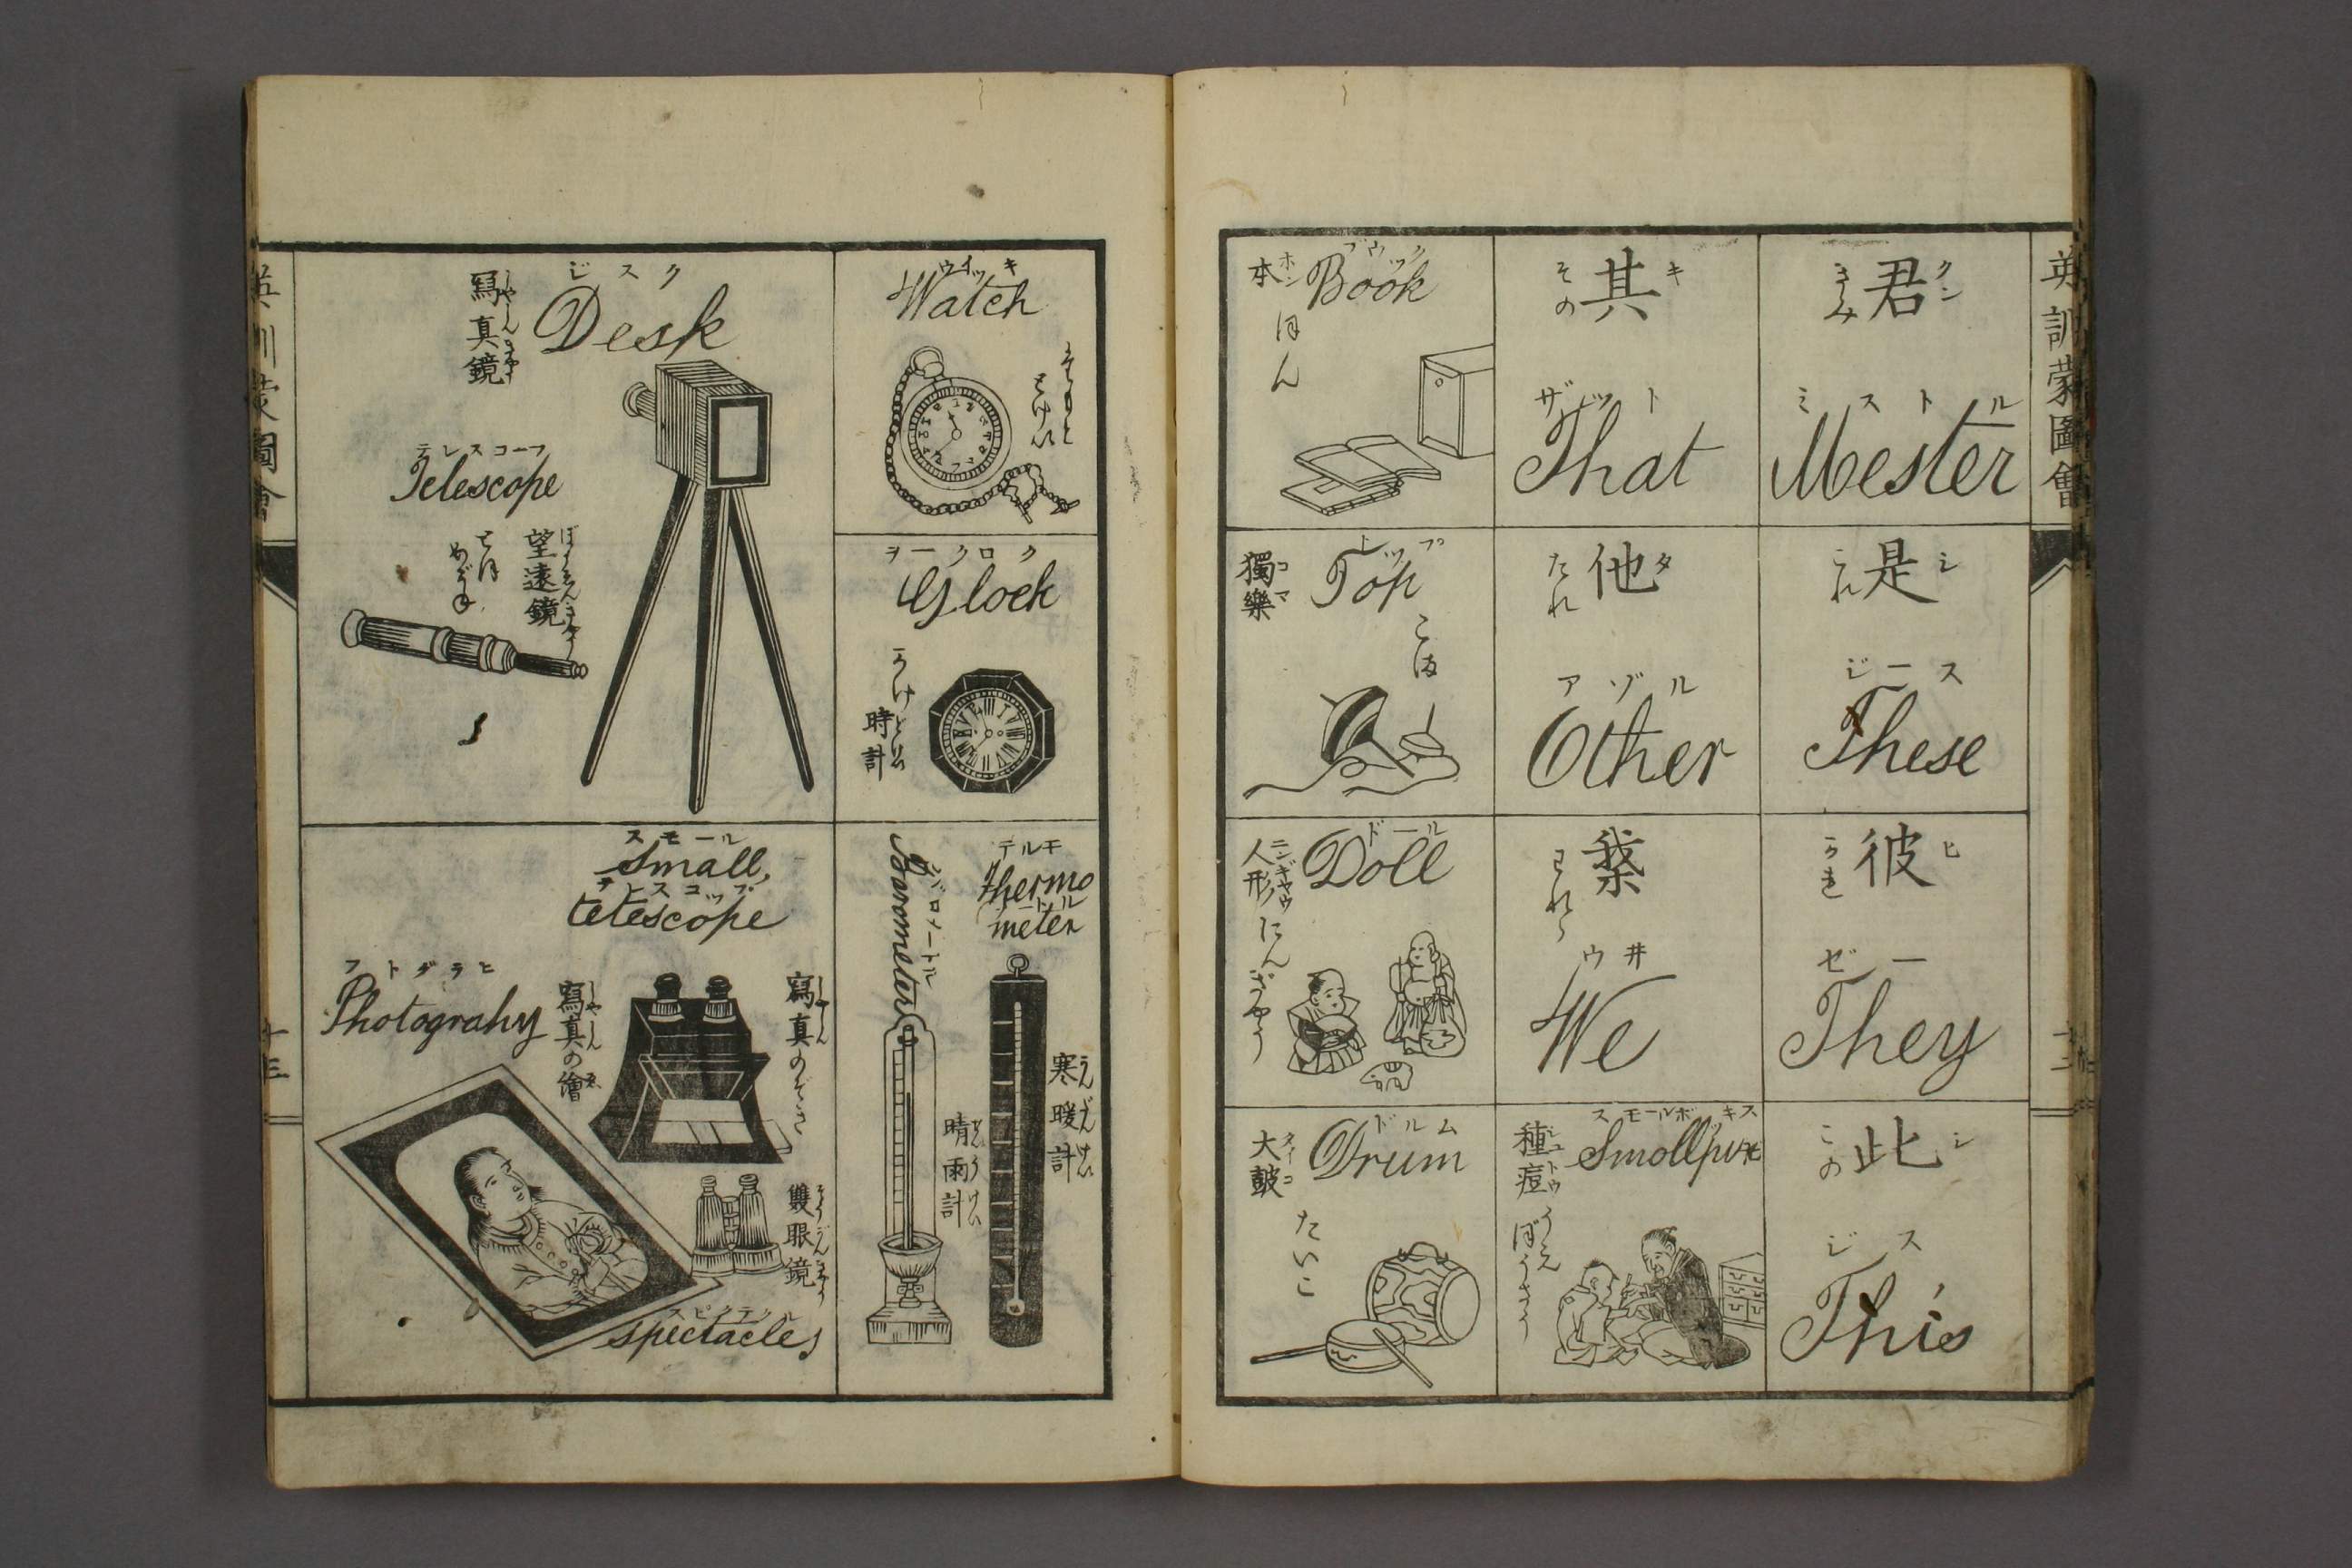 英訓蒙圖會
君
クン
きみ
ミストル
Mester
是
シ
これ
ジース
These
彼
ヒ
かれ
ゼー
They
此
シ
この
ジス
This
其
キ
その
ザット
That
他
タ
たれ
アゾル
Other
われら
ウ井
We
種痘
シュトウ
スモールポキス
うえぼうさう
本
ホン
ブウック
Book
ほん
獨樂
コマ
トップ
Top
こま
人形
ニンギャウ
ドール
Doll
にんぎやう
大皷
タイコ
ドルム
Drum
たいこ
十二
ウイッキ
Watch
そでとけい
ヲークロク
Glock
かけどけい
時計
テルモ
thermo
メートル
meter
寒暖計
かんだんけい
バロメートル
Barometer
晴雨計
せいうけい
ジスク
Desk
寫真鏡
しやしんきやう
テレスコーフ
Telescope
望遠鏡
ぼうゑんきやう
とほめがね
スモール
small,
テレスコップ
telescope
寫真のぞき
しやしん
雙眼鏡
そうがんきやう
スピクテクル
spectacles
フトグラヒ
Photograhy
寫真の繪
しやしん ゑ
英訓蒙圖會
十三